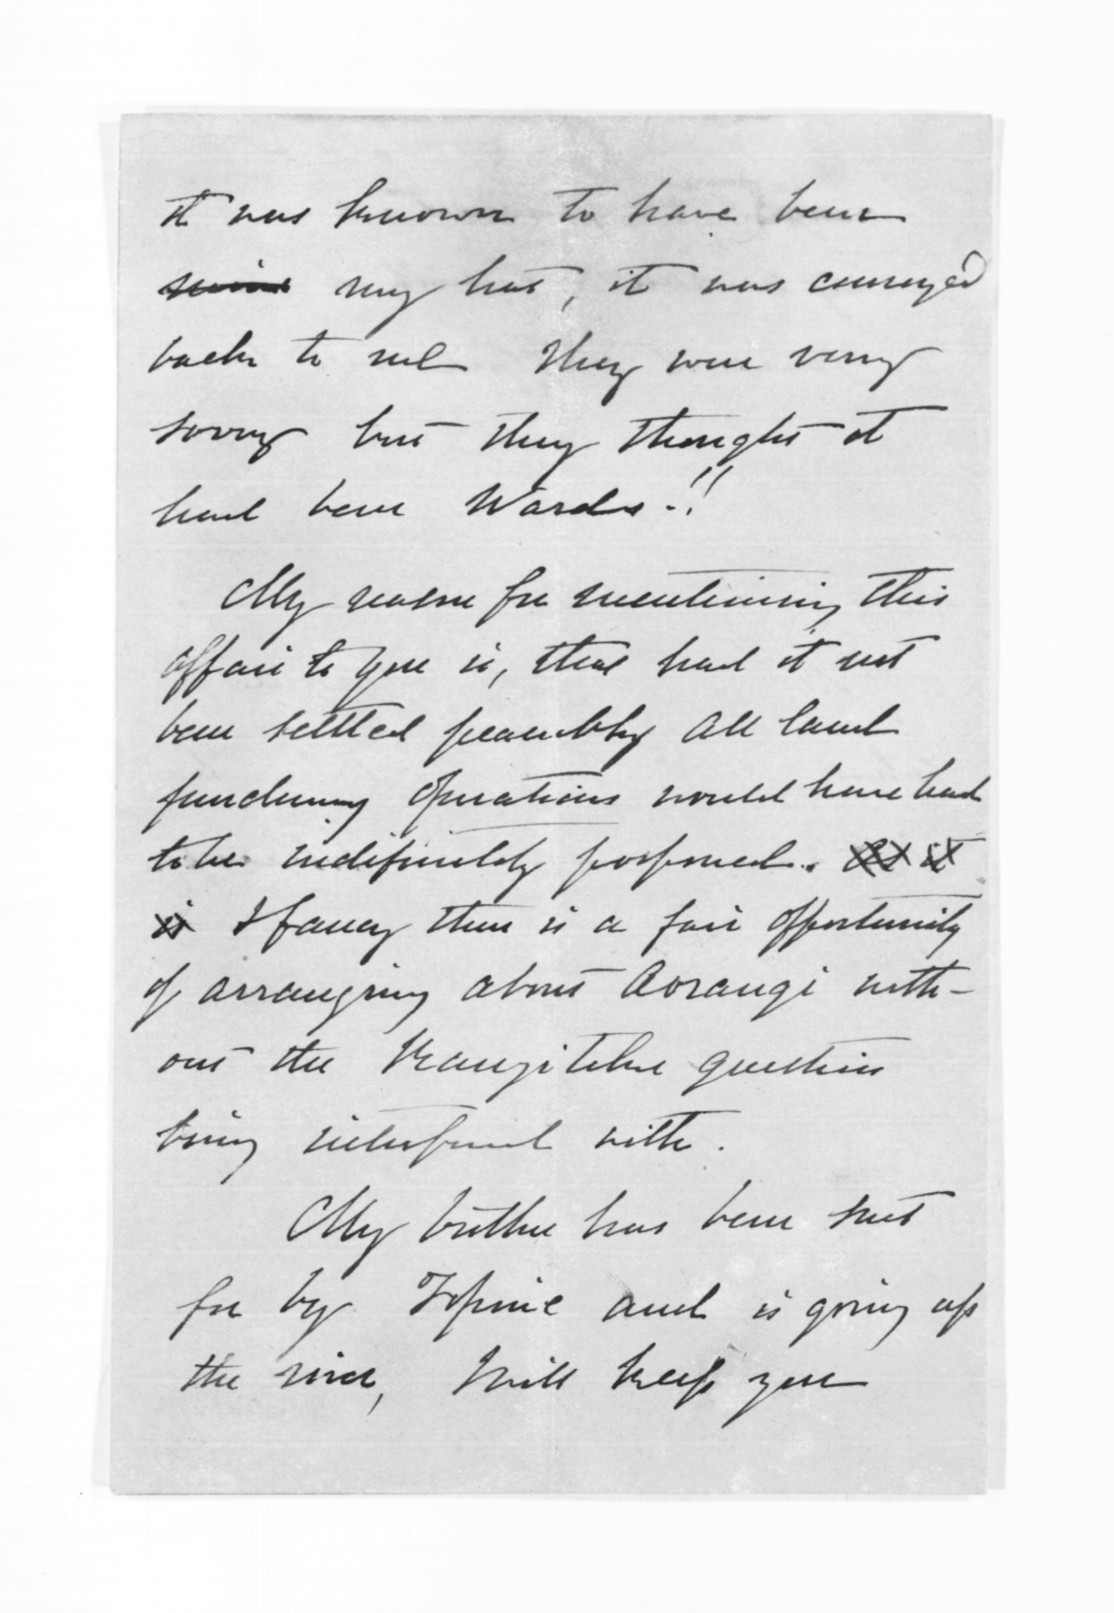 it was known to have been
mine my hat, it was conveyed
back to me They were very
sorry but they thought it
had been Wards.!!
My reason for mentioning this
affair to you is, that had it not
been settled peaceably all land
purchasing operations would have had
to be indefinitely postponed. As it
is I fancy there is a fair opportunity
of arranging about Aorangi with-
out the Rangitikei question
being interfered with.
My brother has been sent
for by Topine and is going up
the river, Will keep you